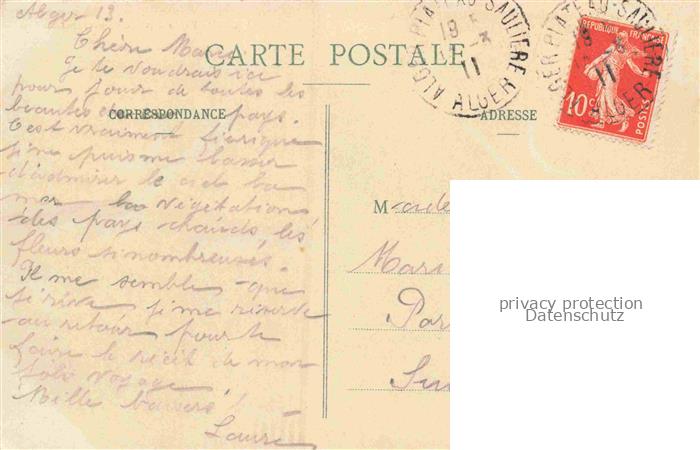 Alger 13.
Chère Marie
CARTE POSTALE
Je te voudrais ici
pour jouir de toutes les
beautés de ce pays.
CORRESPONDANCE
C'est vraiment féerique
je ne puis me lasser
d'admirer le ciel la
mer la végétation
des pays chauds, les
fleurs si nombreuses.
Il me semble que
je rêve je me réserve
au retour pour te
faire le récit de mon
joli voyage
Mille baisers !
Laure
ALGER PLATEAU-SAULIERE
19 5 -3
11
ALGER
ALGER PLATEAU-SAULIERE
11
ALGER
REPUBLIQUE FRANÇAISE
10 c
POSTES
ADRESSE
M
Mari
Par
privacy protection
Datenschutz